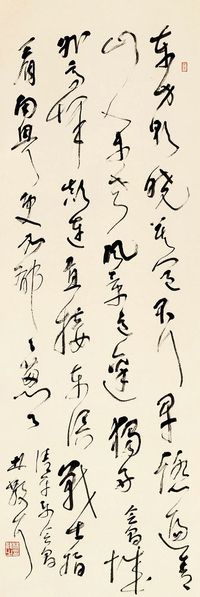 东方欲晓莫道君行早踏遍青
山人未老风景这边独好会昌城
外高峰颠连直接东溟战士指
看南粤更加郁々葱々
清平乐会昌
林散耳